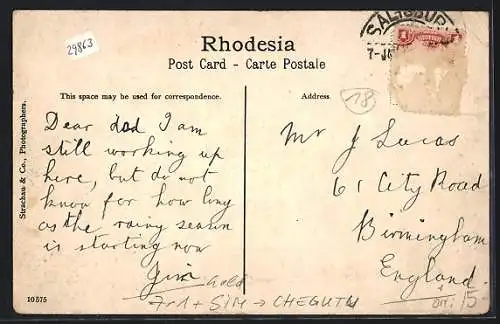 29863
SALISBURY
7-JA
1
Rhodesia
Post Card - Carte Postale
18
This space may be used for correspondence.
Address
Strachan & Co., Photographers.
Dear dad I am
still working up
here, but do not
know for how long
as the rainy season
is starting now
Jim
Mr J Lucas
61 City Road
Birmingham
England
Gold
→ CHEGUTU
15
10575